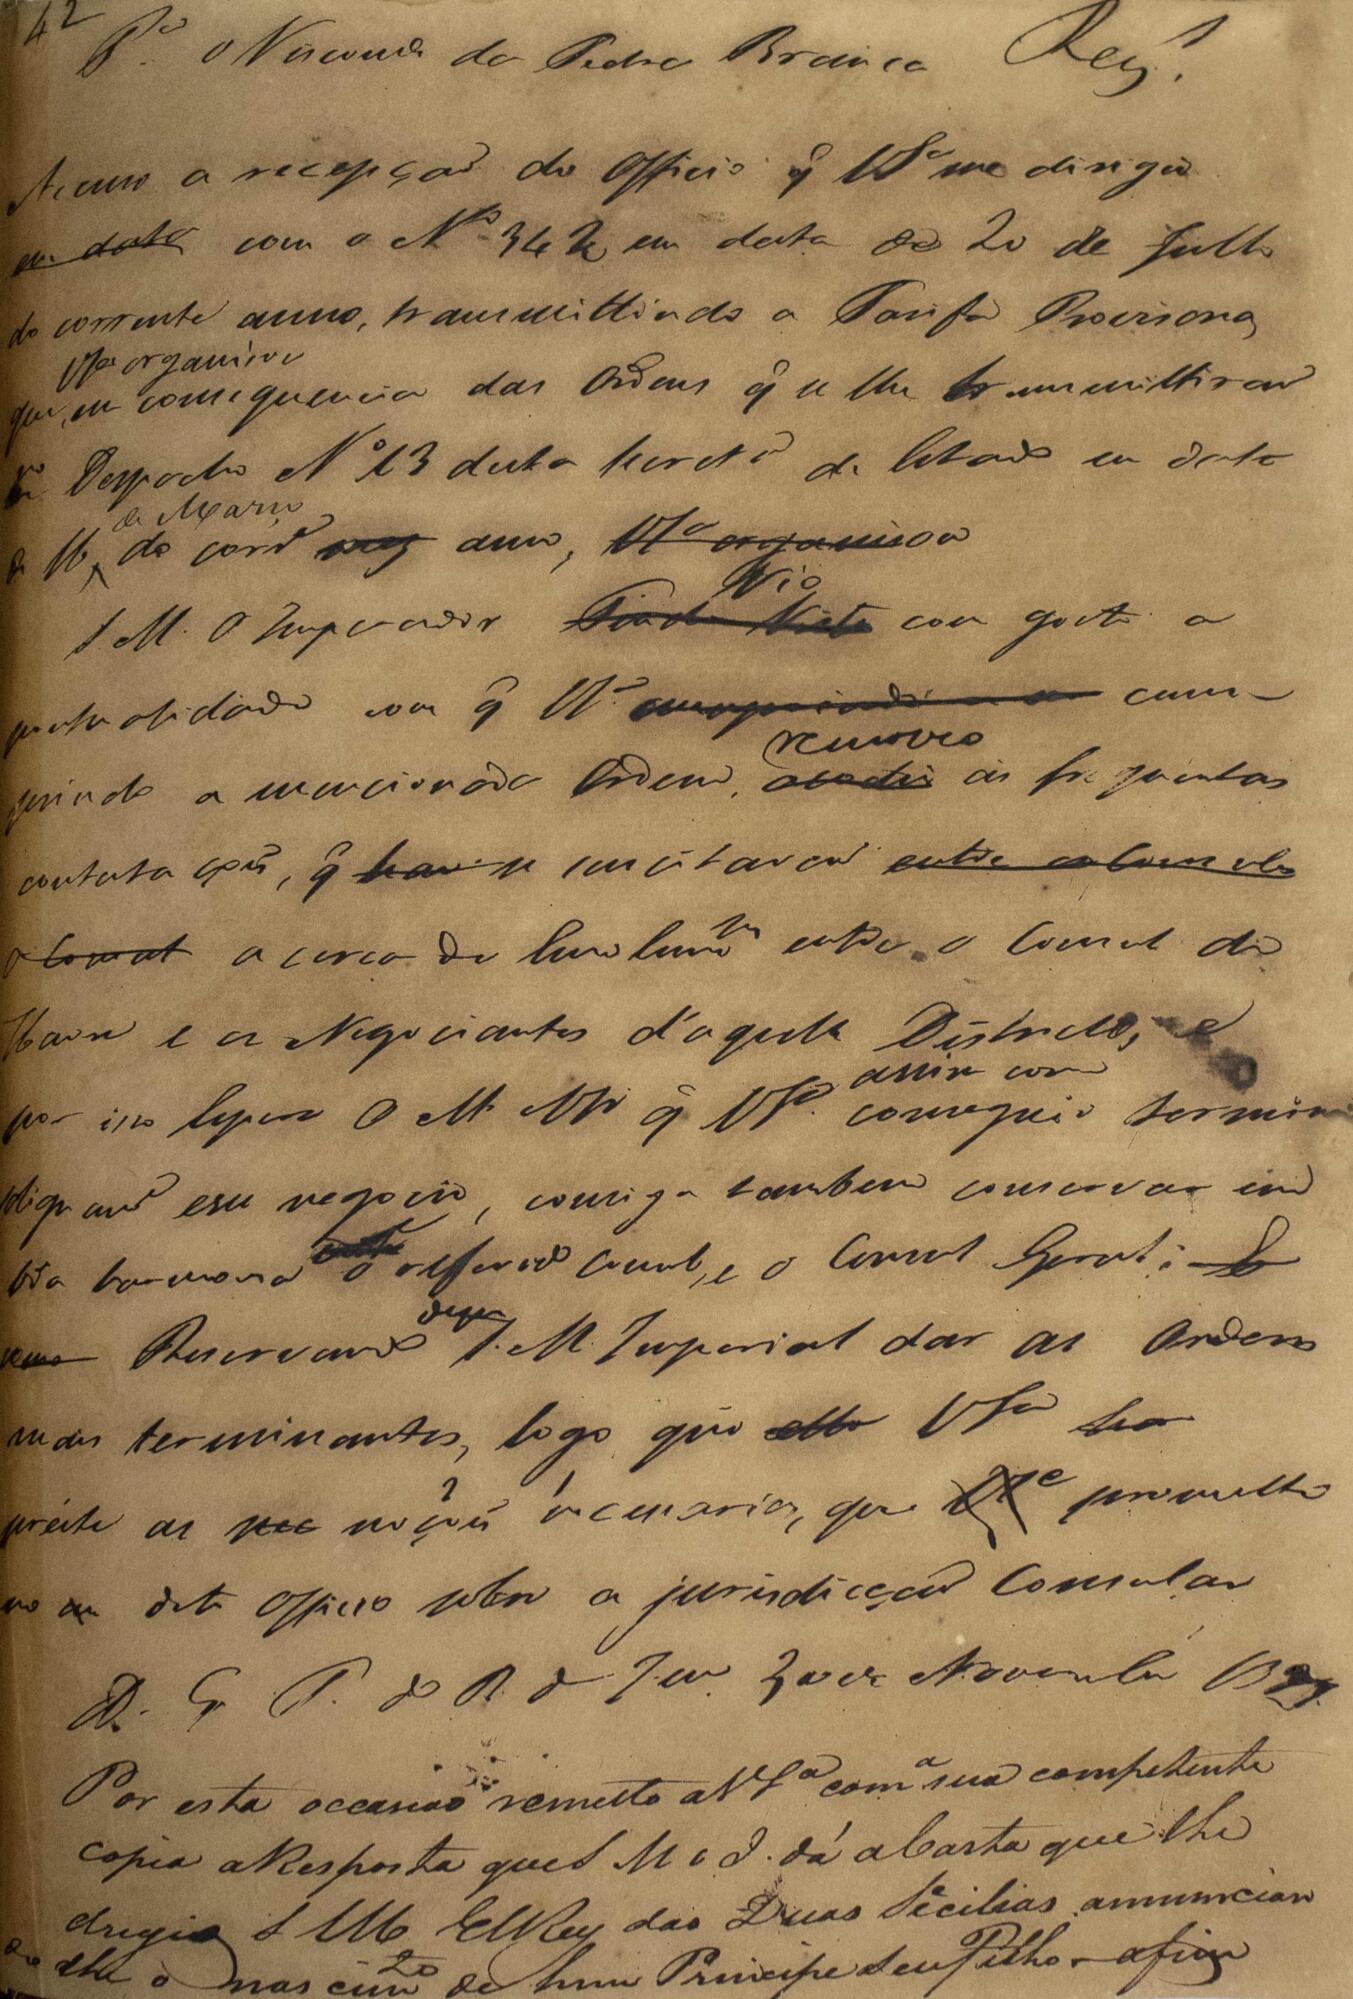 42
P.ª o Visconde da Pedra Branca Reg.
Accuso a recepção do Officio q̃ VSª me dirigio
em data com o Nº 342 em data de 20 de Julho
do corrente anno, transmittindo a Tarifa Provisoria,
VSª organisou
que, em consequencia das Ordens q̃ se lhe transmittirão
no Despacho Nº 13 desta Secretª de Estado em data
de Março
de 16, do corrº anno, VSª organisou
Vio
S. M. O Imperador Tendo Visto com gosto a
com q̃ VSª cum-
removeo
prindo a mencionada Ordem, as frequentes
contestações, q̃ se suscitarão entre
o Consul acerca de Emolumtos entre o Consul do
Havre e os Negociantes d'aquelle Districto, e
assim como
por isso Espera O M. Sr q̃ VSª conseguio
esse negocio, consiga tambem conservar em
boa harmonia o referido Consul, e o Consul Geral:
Reservando S. M. Imperial dar as Ordens
mais terminantes, logo que VSª
as noções necessarias, que promette
no deste Officio sobre a jurisdicção Consular
D. G. P. do R. de Janº de Novembro
Por esta occasião remetto a VSª com a sua competente
copia a Resposta que S M o I. dá a Carta que lhe
dirigio S M ElRey das Duas Sicilias annuncian
do lhe o nascimto de hum Principe seu Filho afim